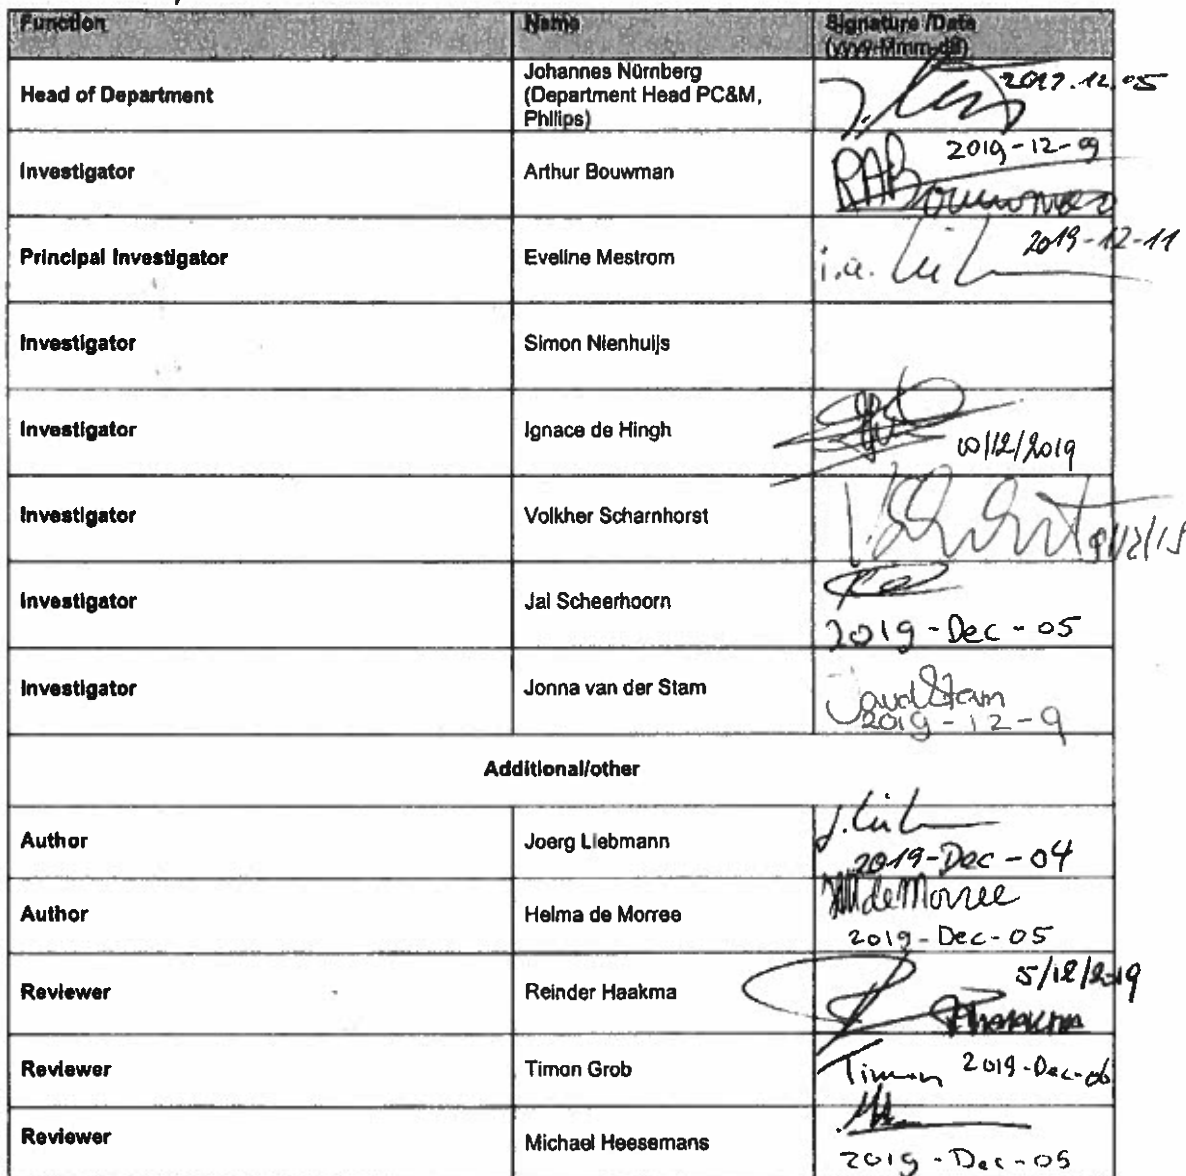 Function Name Signature /Date
(yyyy-Mmm-dd)
Head of Department
Johannes Nürnberg
(Department Head PC&M,
Philips)
2019.12.05
Investigator Arthur Bouwman
2019-12-09
RABouwman
Principal Investigator Eveline Mestrom
i.a. 2019-12-11
Investigator Simon Nienhuijs
Investigator Ignace de Hingh
10/12/2019
Investigator Volkher Scharnhorst
Investigator Jai Scheerhoorn
2019-Dec-05
Investigator Jonna van der Stam
2019-12-9
Additional/other
Author Joerg Liebmann
2019-Dec-04
Author Helma de Morree
de Morree
2019-Dec-05
Reviewer Reinder Haakma
5/12/2019
Reviewer Timon Grob
Timon 2019-Dec-06
Reviewer Michael Heesemans
2019-Dec-05